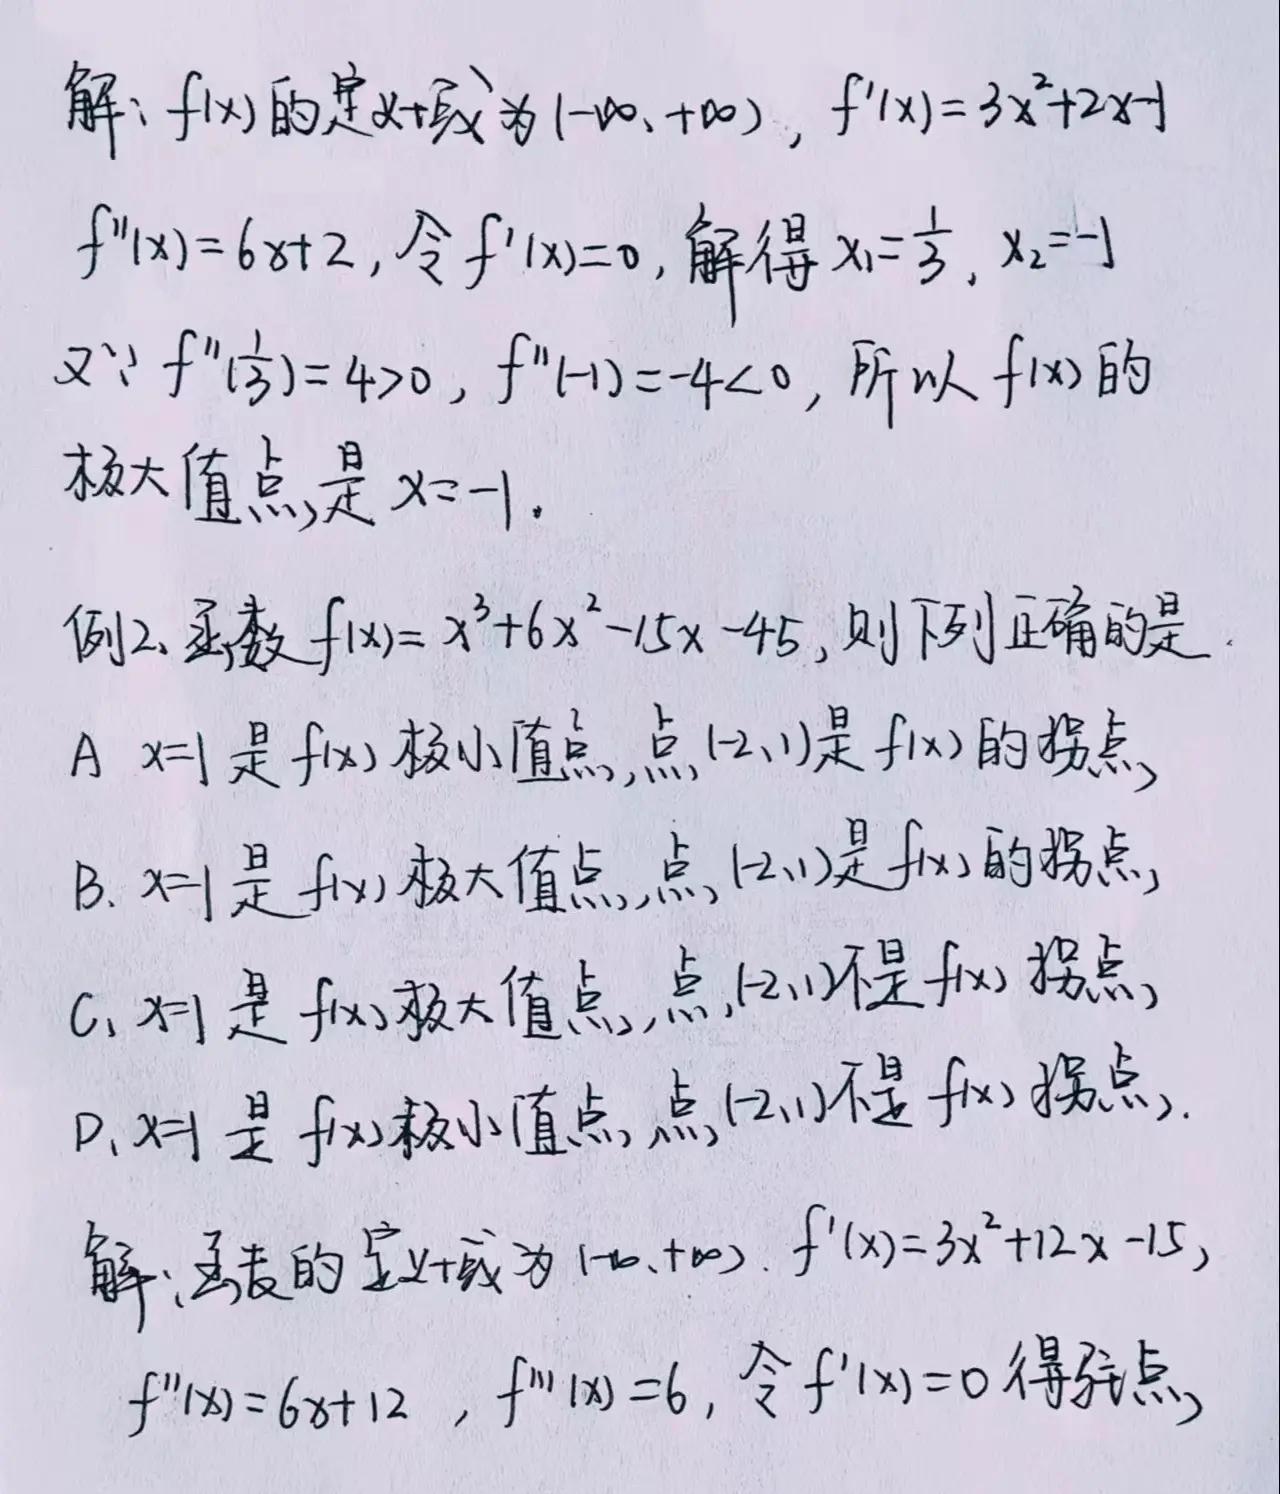 解:f(x)的定义域为(-∞,+∞), f'(x)=3x²+2x-1
f''(x)=6x+2,令f'(x)=0,解得x₁=1/3, x₂=-1
又∵f''(1/3)=4>0, f''(-1)=-4<0, 所以f(x)的
极大值点是x=-1.
例2、函数f(x)=x³+6x²-15x-45,则下列正确的是
A x=1是f(x)极小值点,点(-2,1)是f(x)的拐点
B. x=1是f(x)极大值点,点(-2,1)是f(x)的拐点
C、x=1是f(x)极大值点,点(-2,1)不是f(x)拐点
D、x=1是f(x)极小值点,点(-2,1)不是f(x)拐点.
解:函数的定义域为(-∞,+∞). f'(x)=3x²+12x-15,
f''(x)=6x+12, f'''(x)=6,令f'(x)=0得驻点